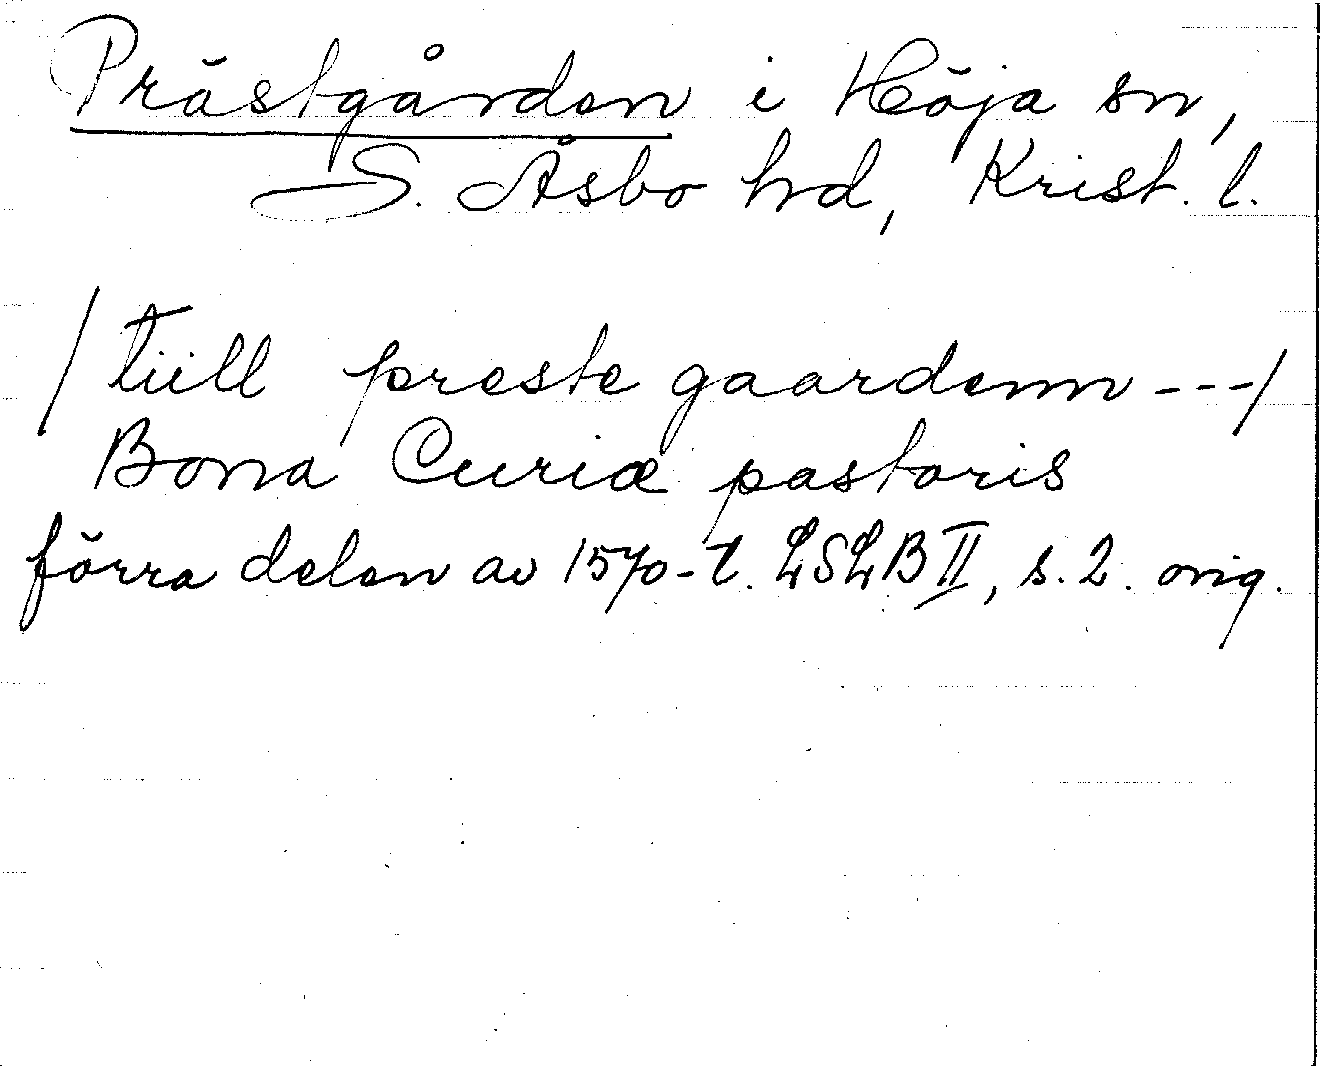 Prästgården i Höja sn,
S. Åsbo hd, Krist. l.
/ tiill preste gaardenn ---/
Bona Curiæ pastoris
förra delen av 1570-t. LSLB II, s. 2. orig.